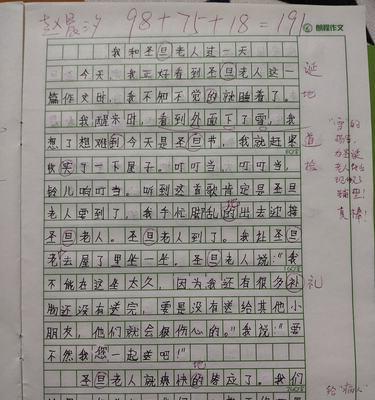 赵晨汐 98+75+18=191
朗程作文
我和圣旦老人过一天
今天,我正好看到圣旦老人这一
篇作文时,我不知不觉的就睡着了。
我醒来时,看到外面下了雪,我
想了想难到今天是圣旦节,我就赶紧
收实了一下屋子。叮叮当,叮叮当,
铃儿响叮当。听到这首歌肯定是圣旦
老人要到了,我手忙脚乱的出去迎接
圣旦老人。圣旦老人到了。我让圣旦
老去屋了里坐一坐,圣旦老人说:“我
不能在这坐太久,因为我还有很多礼
物还没有送完,要是没有送给其他小
朋友,他们就会很伤心的。”我说:“要
不然我您一起送吧!”
圣旦老人就爽快的答应了。我们
诞
地
道
捡
礼
地
地
人
真棒!